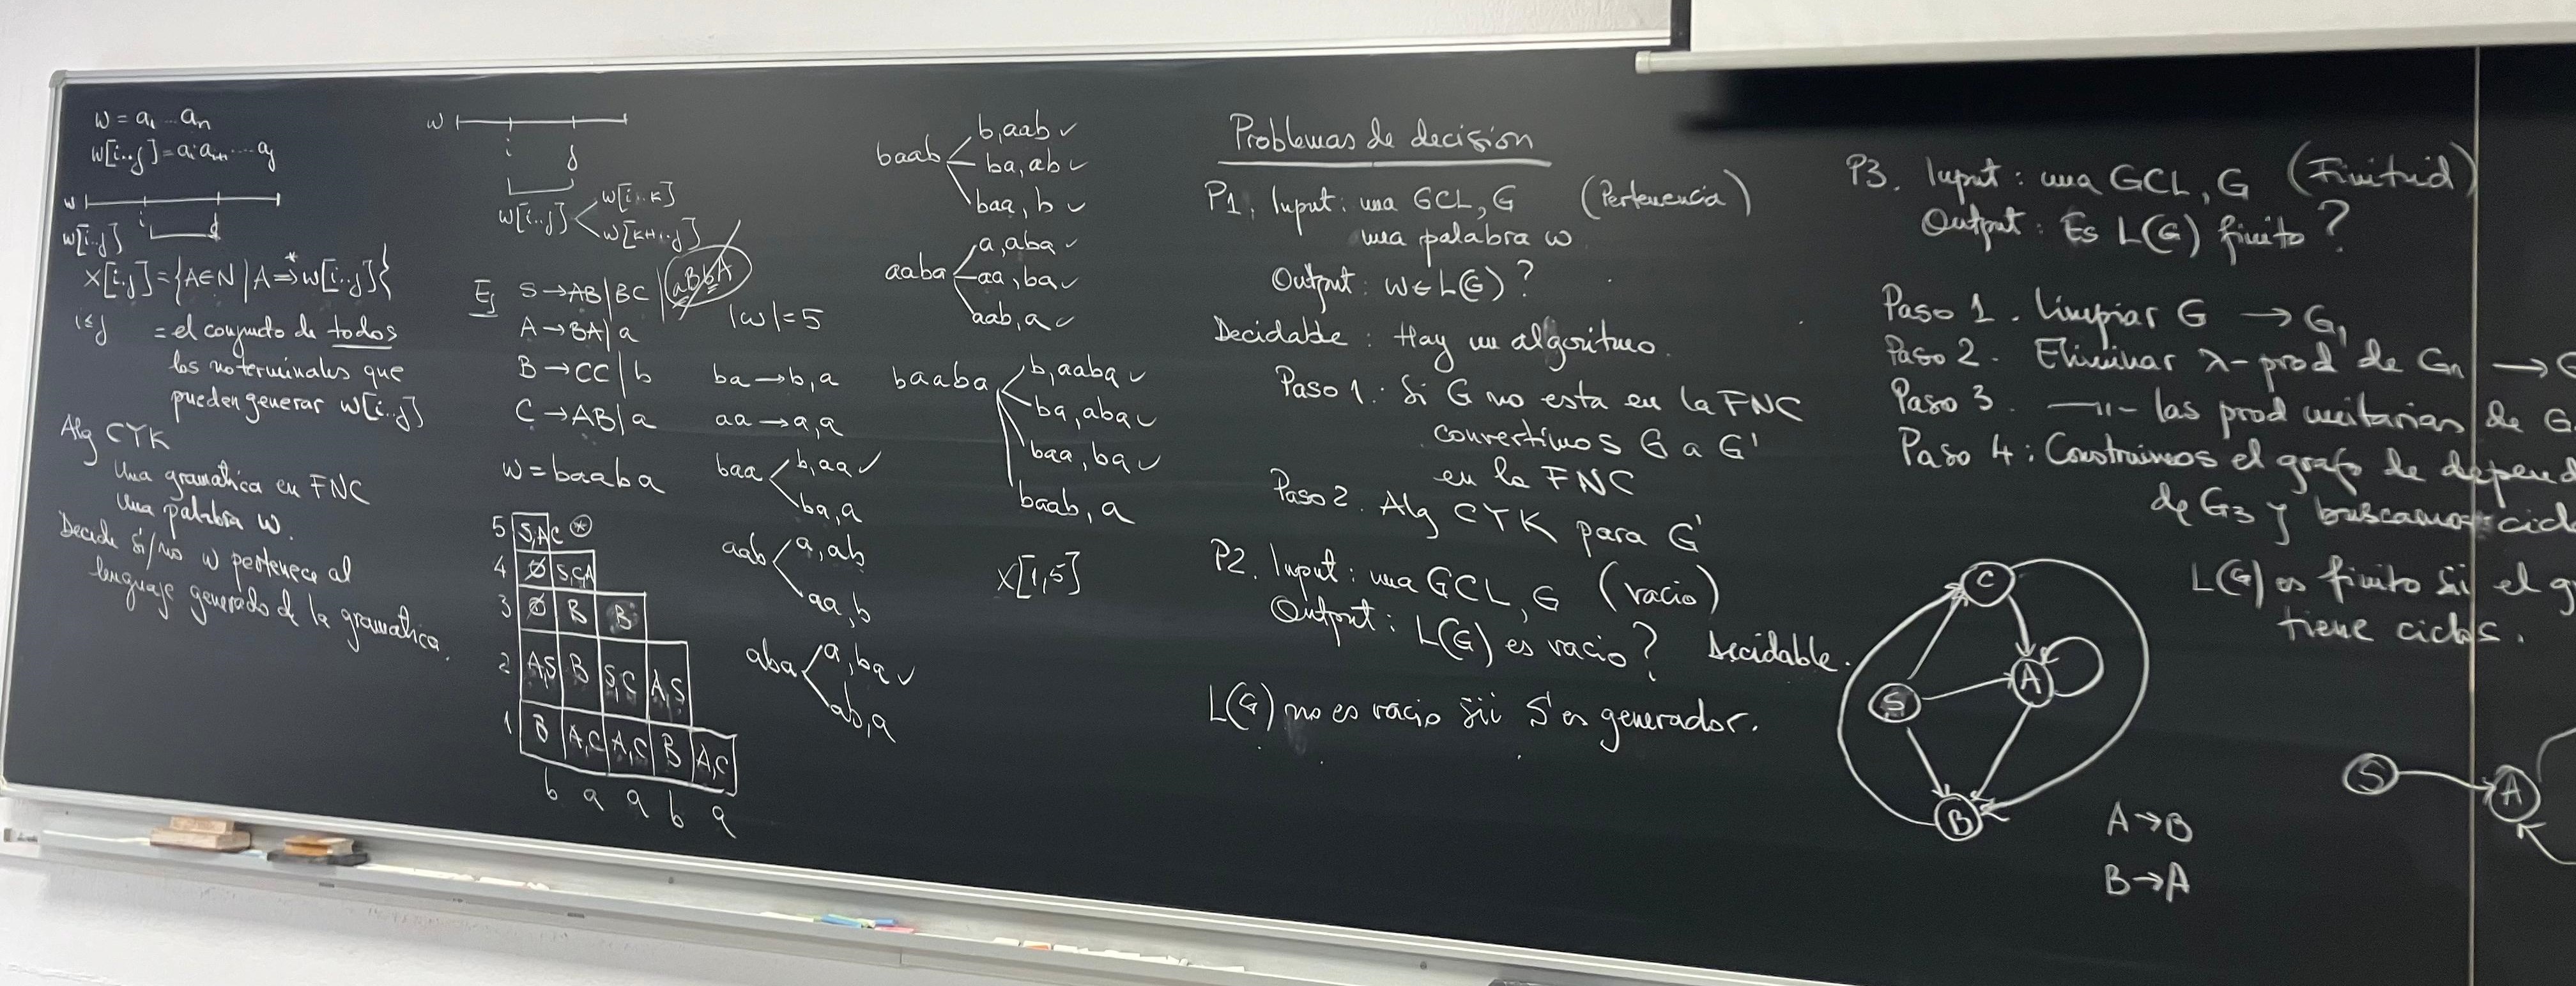 w = a₁ ... aₙ
w[i..j] = aᵢ aᵢ₊₁ .... aⱼ
w
i j
w[i..j]
X[i,j] = {A∈N | A ⇒* w[i..j]}
i≤j = el conjunto de todos
los no terminales que
pueden generar w[i..j]
Alg CYK
Una gramatica en FNC
Una palabra w.
Decide si/no w pertenece al
lenguaje generado de la gramatica.
w
i j
w[i..j]
w[i..k]
w[k+1..j]
Ej S → AB | BC | aBbA
A → BA | a
B → CC | b
C → AB | a
|w| = 5
w = baaba
5 S,A,C *
4 ∅ S,C,A
3 ∅ B B
2 A,S B S,C A,S
1 B A,C A,C B A,C
b a a b a
ba → b, a
aa → a, a
baa
b, aa ✓
ba, a
aab
a, ab
aa, b
aba
a, ba ✓
ab, a
baab
b, aab ✓
ba, ab ✓
baa, b ✓
aaba
a, aba ✓
aa, ba ✓
aab, a ✓
baaba
b, aaba ✓
ba, aba ✓
baa, ba ✓
baab, a
X[1,5]
Problemas de decisión
P1. Input: una GCL, G (Pertenencia)
una palabra w
Output: w ∈ L(G)?
Decidable: Hay un algoritmo.
Paso 1: Si G no esta en la FNC
convertimos G a G'
en la FNC
Paso 2. Alg CYK para G'
P2. Input: una GCL, G (vacio)
Output: L(G) es vacio? Decidable.
L(G) no es vacio sii S es generador.
P3. Input: una GCL, G (Finitud)
Output: Es L(G) finito?
Paso 1. Limpiar G → G₁
Paso 2. Eliminar λ-prod de G₁ → G
Paso 3. —"— las prod unitarias de G
Paso 4: Construimos el grafo de depend
de G₃ y buscamos cicl
L(G) es finito sii el g
tiene ciclos.
C
A
S
B
A → B
B → A
S
A